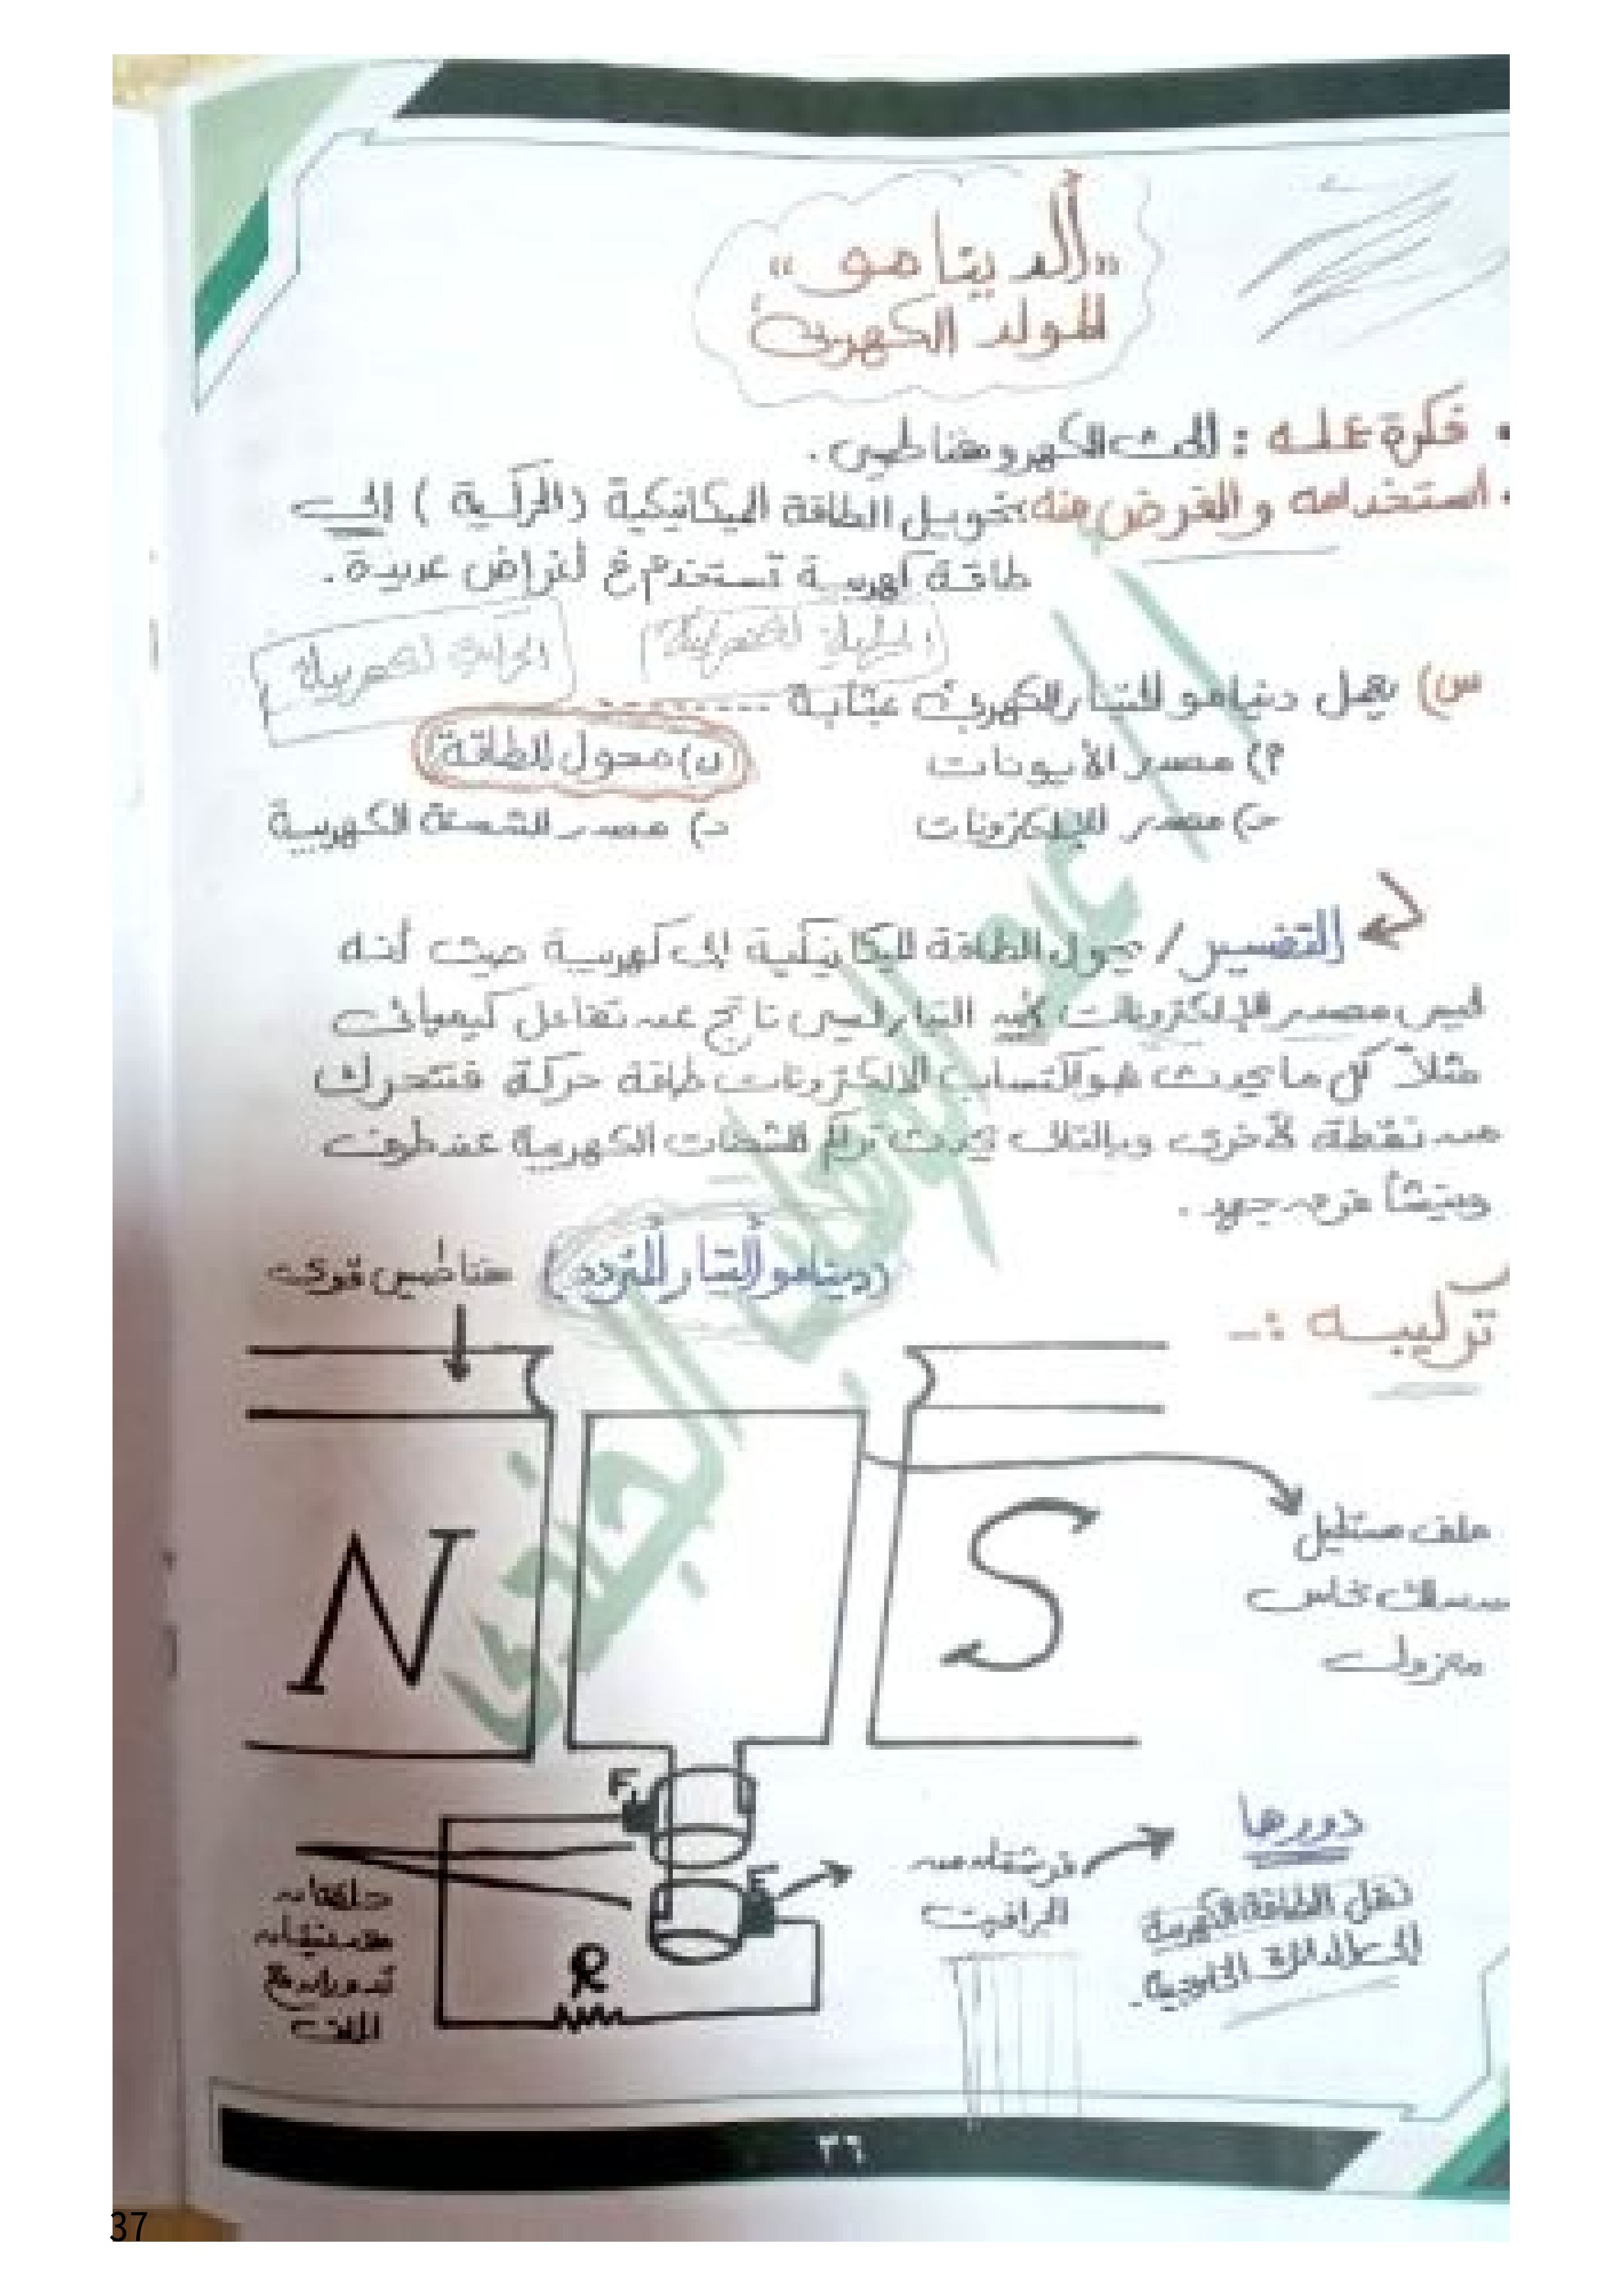 "الدينامو"
المولد الكهربى
• فكرة عمله : الحث الكهرومغناطيسى .
• استخدامه والغرض منه : تحويل الطاقة الميكانيكية (الحركية) إلى
طاقة كهربية تستخدم فى أغراض عديدة .
س) يعمل دينامو التيار الكهربى بمثابة ---------
م) مصدر الأيونات
ب) محول للطاقة
حـ) مصدر للإلكترونات
د) مصدر للشحنة الكهربية
التفسير / يحول الطاقة الميكانيكية إلى كهربية حيث أنه
ليس مصدر للإلكترونات لأن التيار ليس ناتج عن تفاعل كيميائى
مثلاً كل ما يحدث هو اكتساب الالكترونات طاقة حركة فتتحرك
من نقطة لأخرى وبالتالى يحدث تراكم للشحنات الكهربية عند طرف
وينشأ فرق جهد .
تركيبه :-
(دينامو التيار المتردد)
مغناطيس قوى
N
S
ملف مستطيل
سلك نحاس
معزول
F₁
F
R
فرشتان من
الجرافيت
دورها
نقل الطاقة الكهربية
إلى الدائرة الخارجية .
حلقتان
معدنيتان
تدوران مع
الملف
٣٦
37